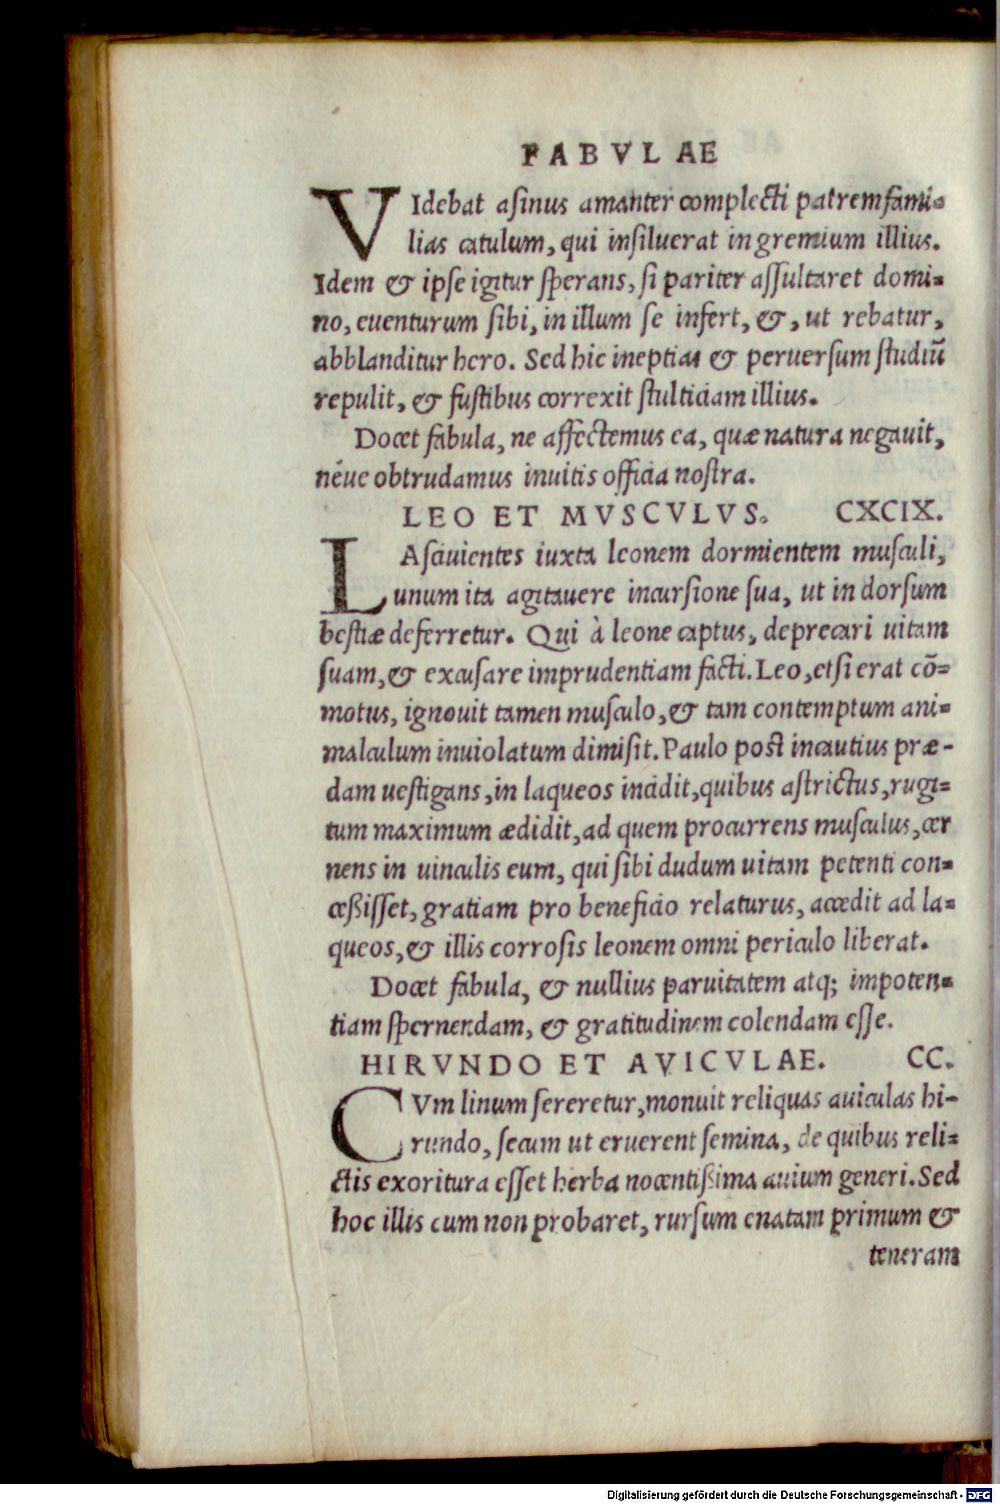 FABVLAE
VIdebat asinus amanter complecti patremfami-
lias catulum, qui insiluerat in gremium illius.
Idem & ipse igitur sperans, si pariter assultaret domi-
no, euenturum sibi, in illum se infert, &, ut rebatur,
abblanditur hero. Sed hic ineptias & peruersum studiũ
repulit, & fustibus correxit stulticiam illius.
Docet fabula, ne affectemus ea, quæ natura negauit,
néue obtrudamus inuitis officia nostra.
LEO ET MVSCVLVS. CXCIX.
LAsciuientes iuxta leonem dormientem musculi,
unum ita agitauere incursione sua, ut in dorsum
bestiæ deferretur. Qui à leone captus, deprecari uitam
suam, & excusare imprudentiam facti. Leo, etsi erat cõ-
motus, ignouit tamen musculo, & tam contemptum ani-
malculum inuiolatum dimisit. Paulo post incautius præ-
dam uestigans, in laqueos incidit, quibus astrictus, rugi-
tum maximum ædidit, ad quem procurrens musculus, cer
nens in uinculis eum, qui sibi dudum uitam petenti con-
ceßisset, gratiam pro beneficio relaturus, accedit ad la-
queos, & illis corrosis leonem omni periculo liberat.
Docet fabula, & nullius paruitatem atq; impoten-
tiam spernendam, & gratitudinem colendam esse.
HIRVNDO ET AVICVLAE. CC.
CVm linum sereretur, monuit reliquas auiculas hi-
rundo, secum ut eruerent semina, de quibus reli-
ctis exoritura esset herba nocentißima auium generi. Sed
hoc illis cum non probaret, rursum enatam primum &
teneram
Digitalisierung gefördert durch die Deutsche Forschungsgemeinschaft - DFG